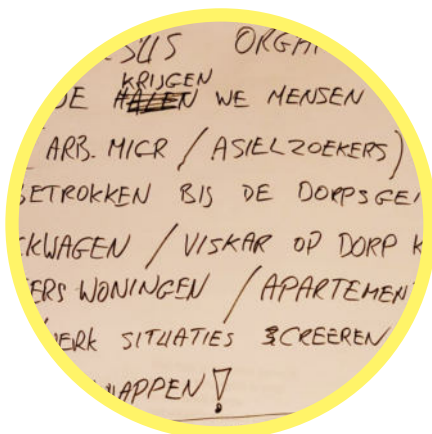 SUS ORGA
KRIJGEN
OE WE MENSEN
ARB. MIGR / ASIELZOEKERS)
BETROKKEN BIJ DE DORPSGE
CKWAGEN / VISKAR OP DORP K
ERS WONINGEN / APARTEMEN
WERK SITUATIES CREEREN
APPEN!